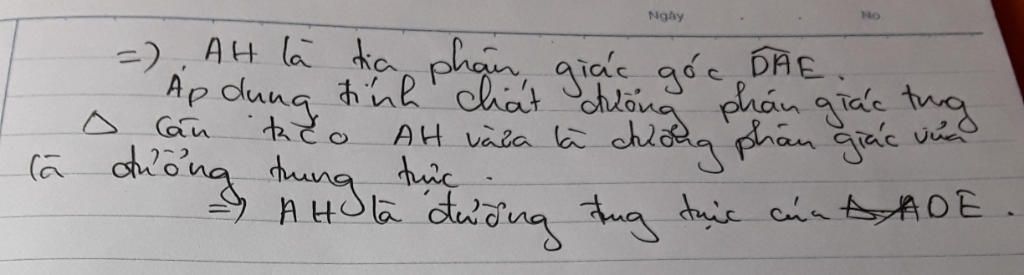 Ngày No
=) AH là tia phân giác góc DAE.
Áp dụng tính chất đường phân giác tung
Δ cân AH vừa là đường phân giác vừa
là đường trung trực.
=) AH là đường tung trực của ADE.